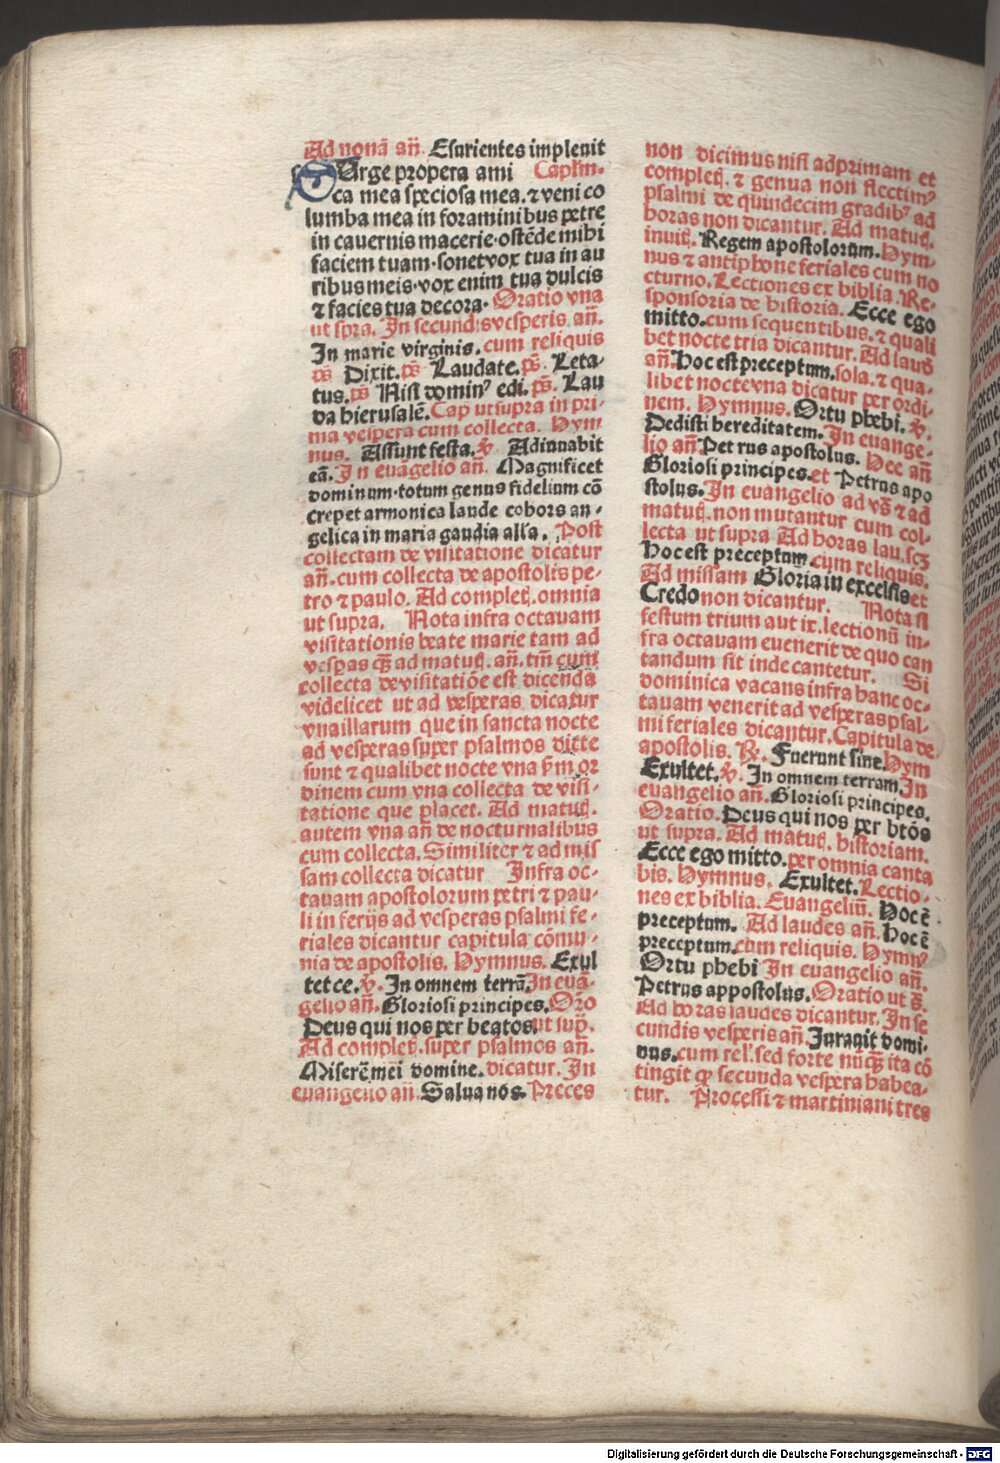 Ad nonā an̄. Esurientes impleuit
SUrge propera ami Caplm̄.
ca mea speciosa mea. ⁊ veni co
lumba mea in foraminibus petre
in cauernis macerie·ostēde mihi
faciem tuam·sonet vox tua in au
ribus meis·vox enim tua dulcis
⁊ facies tua decora· Oratio vna
ut spra. In secundis vesperis an̄.
In marie virginis. cum reliquis
ps̄ Dixit. ps̄ Laudate. ps̄. Leta-
tus. ps̄ Nisi domin⁹ edi. ps̄. Lau
da hierusalē. Cap ut supra in pri-
ma vespera cum collecta. Hym
nus. Assunt festa. v̄. Adiuuabit
eā. In euāgelio an̄. Magnificet
dominum·totum genus fidelium cō
crepet armonica laude cohors an-
gelica in maria gaudia alľa. Post
collectam de visitatione dicatur
an̄. cum collecta de apostolis pe-
tro ⁊ paulo. Ad complet̄. omnia
ut supra. Nota infra octauam
visitationis beate marie tam ad
vesp̄as q̄ȝ ad matut̄. an̄. tm̄ cum
collecta de visitatiōe est dicenda
videlicet ut ad vesperas dicatur
vna illarum que in sancta nocte
ad vesperas super psalmos dicte
sunt ⁊ qualibet nocte vna s̄m or
dinem cum vna collecta de visi-
tatione que placet. Ad matut̄.
autem vna an̄ de nocturnalibus
cum collecta. Similiter ⁊ ad mis
sam collecta dicatur Infra oc-
tauam apostolorum petri ⁊ pau-
li in ferijs ad vesperas psalmi fe-
riales dicantur capitula cōmu-
nia de apostolis. Hymnus. Exul
tet ce. v̄. In omnem terrā. In euā-
gelio an̄. Gloriosi principes. Orō
Deus qui nos per beatos. ut sup̄.
Ad complet̄. super psalmos an̄.
Miserē mei domine. dicatur. In
euangelio an̄. Salua nos. Preces
non dicimus nisi ad primam et
complet̄. ⁊ genua non flectim⁹
psalmi de quindecim gradib⁹ ad
horas non dicantur. Ad matut̄.
inuit̄. Regem apostolorum. Hym-
nus ⁊ antiphone feriales cum no
cturno. Lectiones ex biblia. Re-
sponsoria de historia. Ecce ego
mitto. cum sequentibus. ⁊ quali
bet nocte tria dicantur. Ad laud̄
an̄. Hoc est preceptum. sola. ⁊ qua-
libet nocte vna dicatur per ordi-
nem. Hymnus. Ortu phebi. v̄.
Dedisti hereditatem. In euange-
lio an̄. Pet rus apostolus. Hee an̄
Gloriosi principes. et Petrus apo
stolus. In euangelio ad vs̄ ⁊ ad
matut̄. non mutantur cum col-
lecta ut supra Ad horas lau. scȝ
Hoc est preceptum. cum reliquis.
Ad missam Gloria in excelsis et
Credo non dicantur. Nota si
festum trium aut ix. lectionū in-
fra octauam euenerit de quo can
tandum sit inde cantetur. Si
dominica vacans infra hanc oc-
tauam venerit ad vesperas psal-
mi feriales dicantur. Capitula de
apostolis. R̄. Fuerunt sine. Hym
Exultet. v̄. In omnem terram. In
euangelio an̄. Gloriosi principes.
Oratio. Deus qui nos per btōs
ut supra. Ad matut̄. historiam.
Ecce ego mitto. per omnia canta
bis. Hymnus. Exultet. Lectio-
nes ex biblia. Euangeliū. Hoc ē
preceptum. Ad laudes an̄. Hoc ē
preceptum. cum reliquis. Hymn⁹
Ortu phebi In euangelio an̄.
Petrus appostolus. Oratio ut s̄.
Ad horas laudes dicantur. In se
cundis vesperis an̄. Iurauit domi-
nus. cum rel'. sed forte nūq̄ȝ ita cō
tingit qꝫ secunda vespera habea-
tur. Processi ⁊ martiniani tres
Digitalisierung gefördert durch die Deutsche Forschungsgemeinschaft - DFG